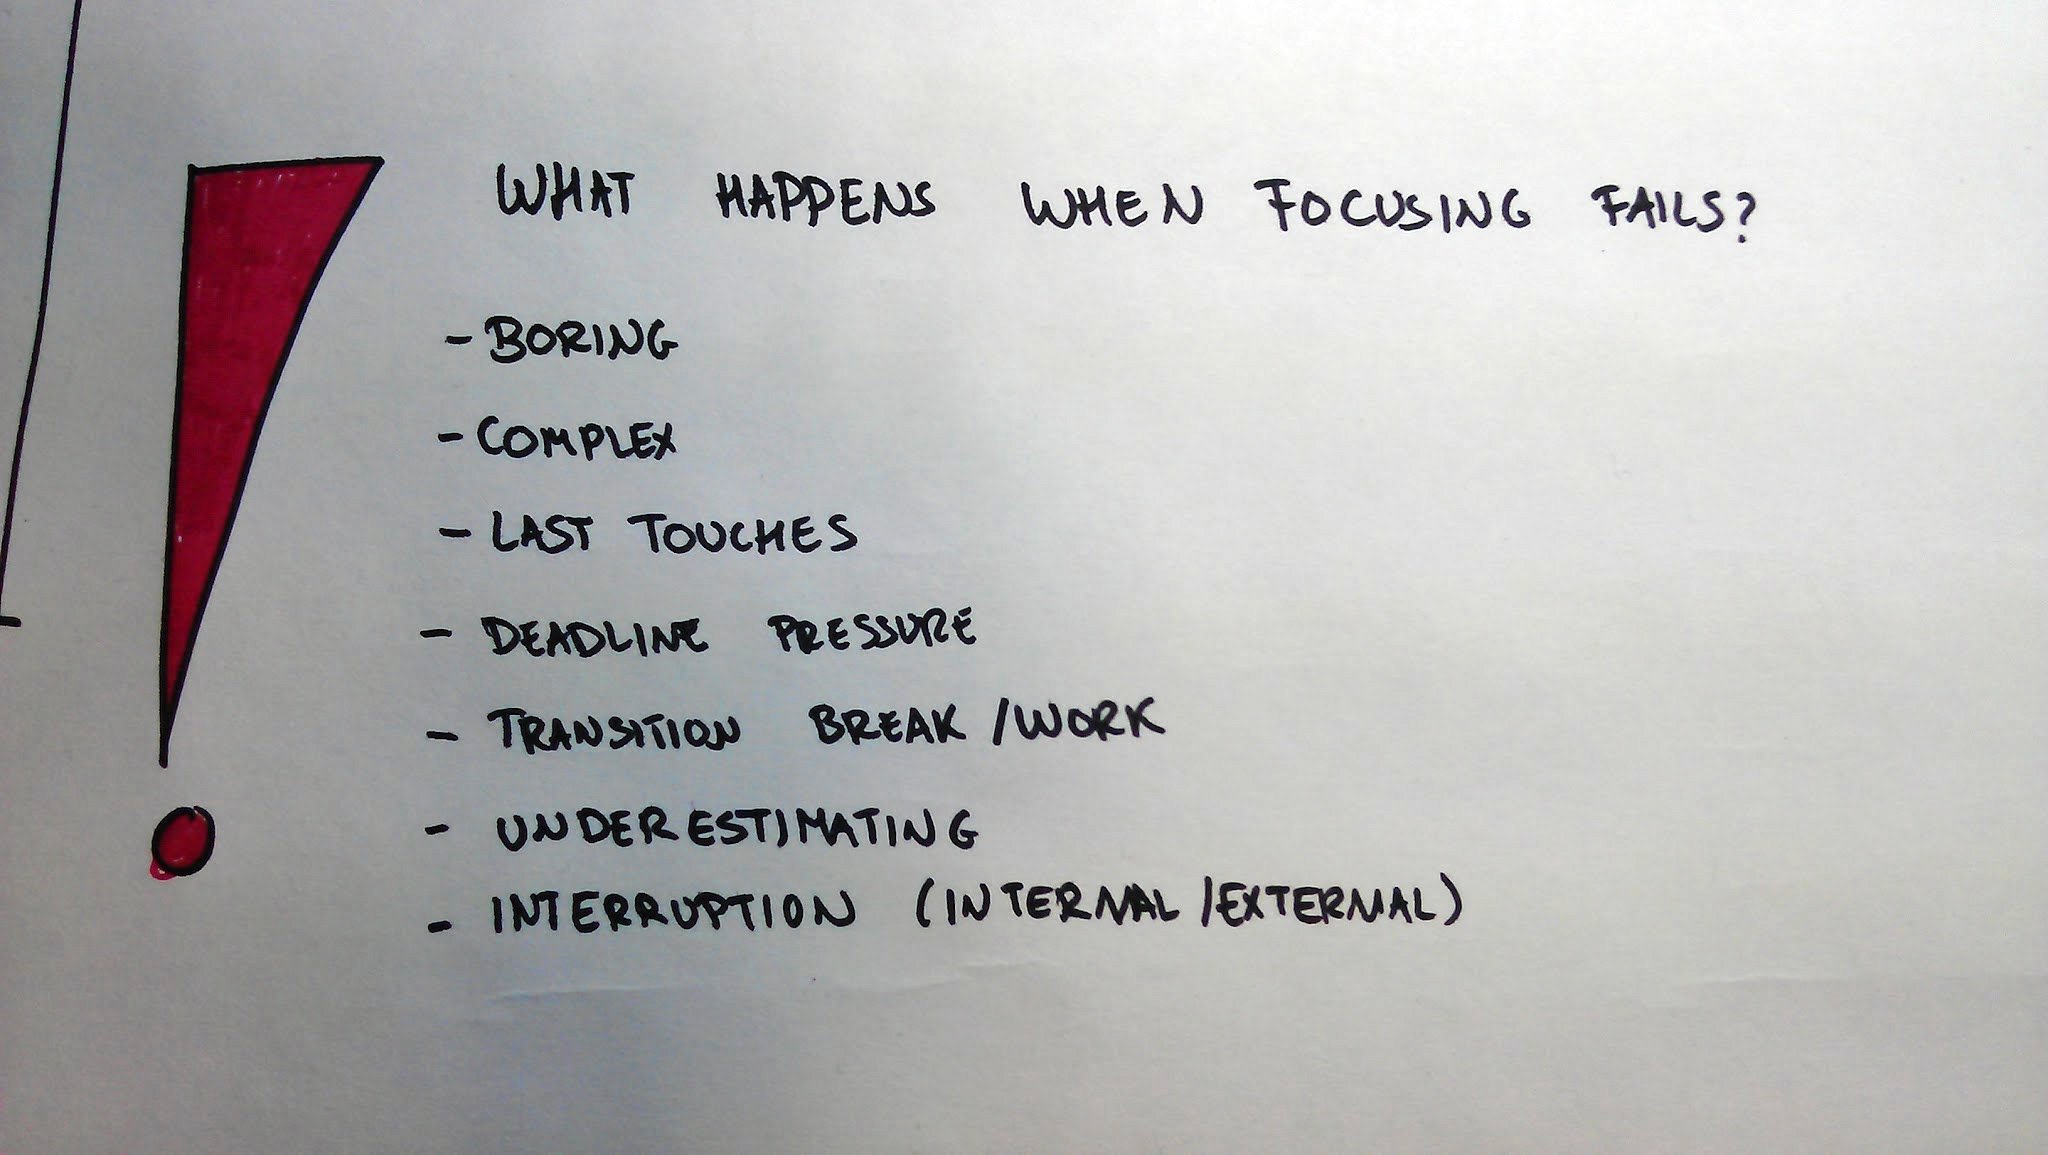 WHAT HAPPENS WHEN FOCUSING FAILS?
- BORING
- COMPLEX
- LAST TOUCHES
- DEADLINE PRESSURE
- TRANSITION BREAK /WORK
- UNDERESTIMATING
- INTERRUPTION (INTERNAL /EXTERNAL)